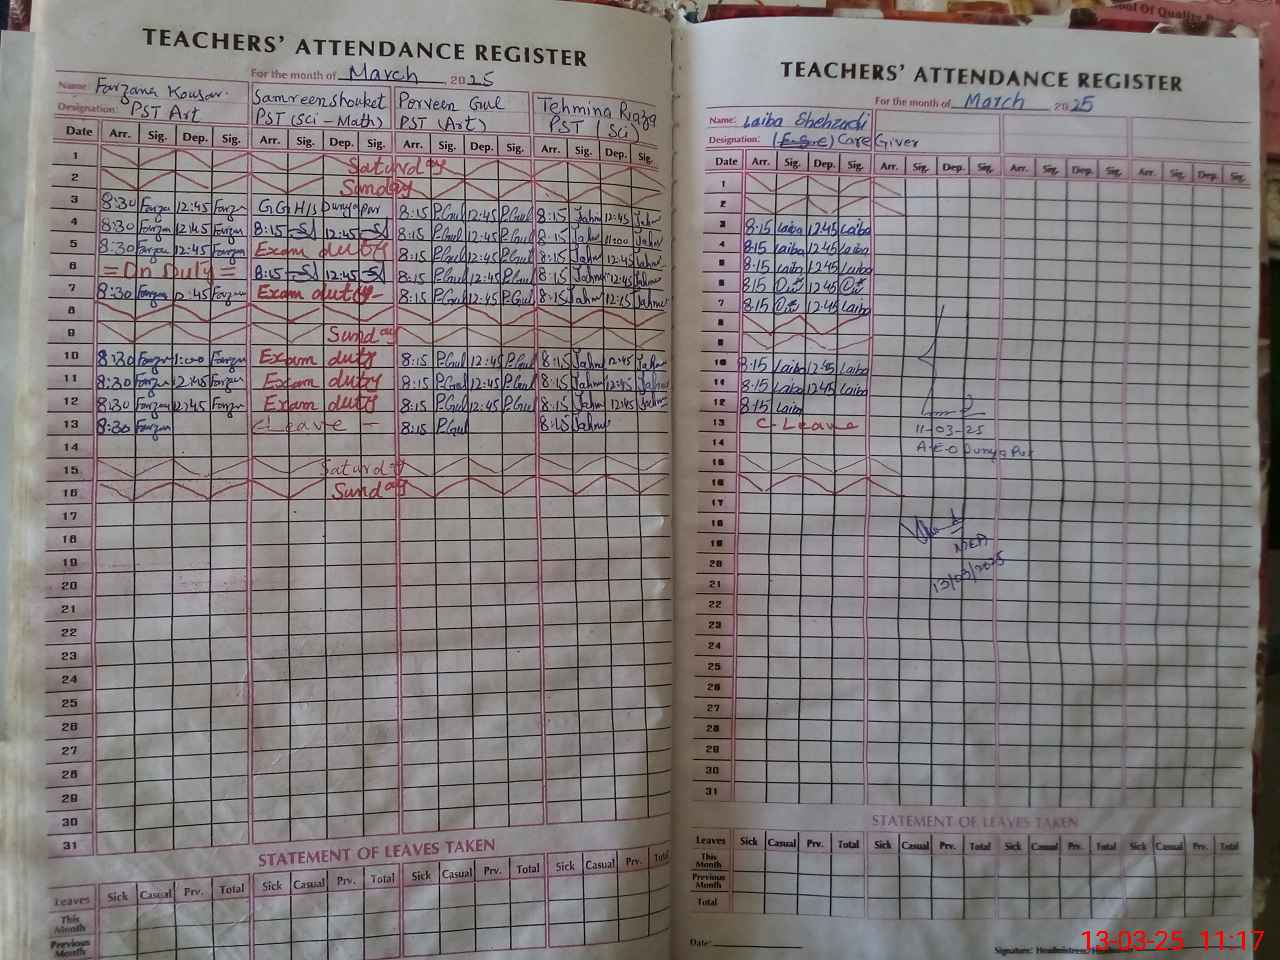 ool Of Quality
TEACHERS' ATTENDANCE REGISTER
For the month of March 2025
Name: Farzana Kousar. Samreen Shouket Perveen Gul Tehmina Riaza
Designation: PST Art PST (Sci - Math) PST (Art) PST (Sci)
Date Arr. Sig. Dep. Sig. Arr. Sig. Dep. Sig. Arr. Sig. Dep. Sig. Arr. Sig. Dep. Sig.
1 Saturday
2 Sunday
3 8:30 Farzan 12:45 Farzan G.G.H/S Dunya Pur 8:15 P.Gul 12:45 P.Gul 8:15 Jahm 12:45 Jahm
4 8:30 Farzan 12:45 Farzan 8:15 12:45 8:15 P.Gul 12:45 P.Gul 8:15 Jahm 11:00 Jahm
5 8:30 Farzan 12:45 Farzan Exam duty 8:15 P.Gul 12:45 P.Gul 8:15 Jahm 12:45 Jahm
6 = On Duty = 8:15 12:45 8:15 P.Gul 12:45 P.Gul 8:15 Jahm 12:45 Jahm
7 8:30 Farzan 12:45 Farzan Exam duty - 8:15 P.Gul 12:45 P.Gul 8:15 Jahm 12:15 Jahm
8
9 Sunday
10 8:30 Farzan 1:00 Farzan Exam duty 8:15 P.Gul 12:45 P.Gul 8:15 Jahm 12:45 Jahm
11 8:30 Farzan 12:45 Farzan Exam duty 8:15 P.Gul 12:45 P.Gul 8:15 Jahm 12:45 Jahm
12 8:30 Farzan 12:45 Farzan Exam duty 8:15 P.Gul 12:45 P.Gul 8:15 Jahm 12:45 Jahm
13 8:30 Farzan C-Leave - 8:15 P.Gul 8:15 Jahm
14
15 Saturday
16 Sunday
17
18
19
20
21
22
23
24
25
26
27
28
29
30
31
STATEMENT OF LEAVES TAKEN
Leaves Sick Casual Prv. Total Sick Casual Prv. Total Sick Casual Prv. Total Sick Casual Prv. Total
This Month
Previous Month
TEACHERS' ATTENDANCE REGISTER
For the month of March 2025
Name: Laiba Shehzadi
Designation: (E.S.E) Care Giver
Date Arr. Sig. Dep. Sig. Arr. Sig. Dep. Sig. Arr. Sig. Dep. Sig. Arr. Sig. Dep. Sig.
1
2
3 8:15 Laiba 12:45 Laiba
4 8:15 Laiba 12:45 Laiba
5 8:15 Laiba 12:45 Laiba
6 8:15 12:45
7 8:15 12:45 Laiba
8
9
10 8:15 Laiba 12:45 Laiba
11 8:15 Laiba 12:45 Laiba
12 8:15 Laiba
13 C-Leave 11-03-25
14 A.E.O Dunya Pur
15
16
17
18
19 MEA
20
21 13/03/2025
22
23
24
25
26
27
28
29
30
31
STATEMENT OF LEAVES TAKEN
Leaves Sick Casual Prv. Total Sick Casual Prv. Total Sick Casual Prv. Total Sick Casual Prv. Total
This Month
Previous Month
Total
Date:
Signature: Headmistress/
13-03-25 11:17